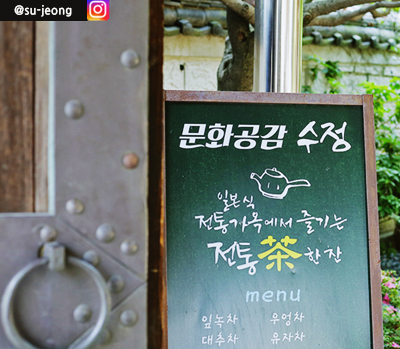 @su-jeong
문화공감 수정
일본식
전통가옥에서 즐기는
전통茶한잔
menu
잎녹차 우엉차
대추차 유자차